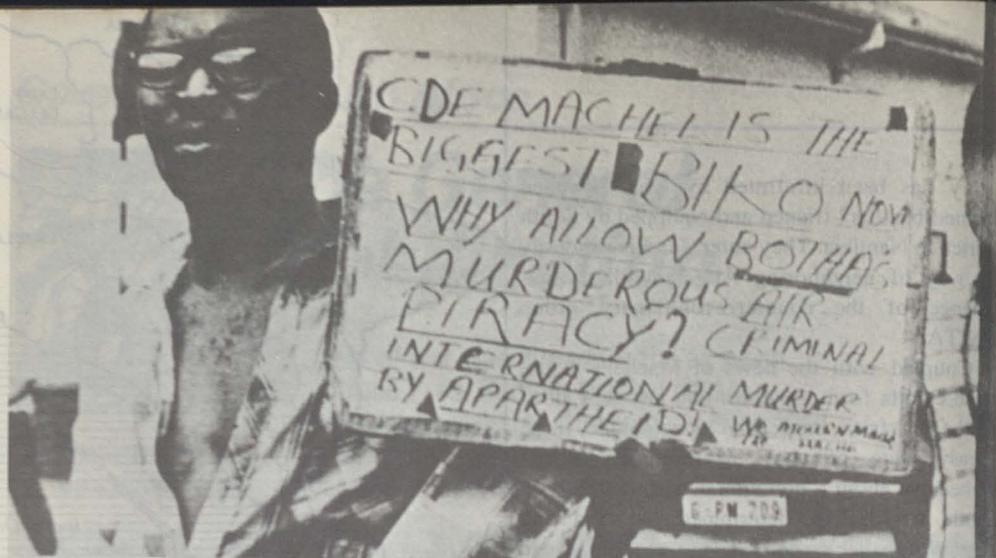 CDE MACHEL IS THE
BIGGEST BIKO NOW
WHY ALLOW BOTHA'S
MURDEROUS AIR
PIRACY? CRIMINAL
INTERNATIONAL MURDER
BY APARTHEID! WE